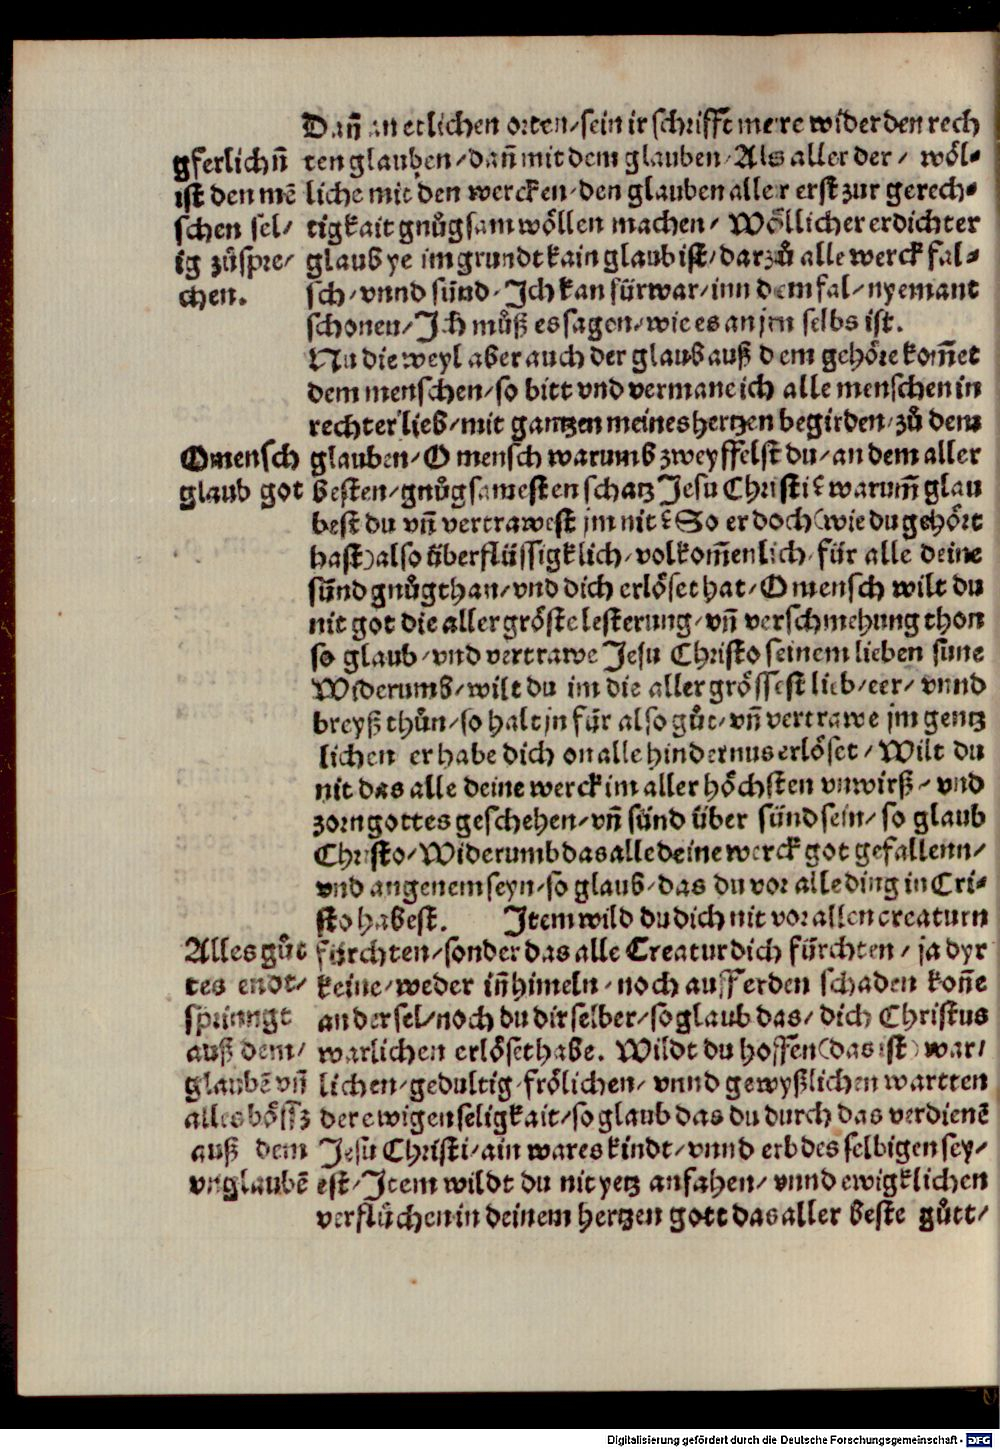 Dañ an etlichen orten/sein ir schrifft mere wider den rech
ten glauben/dañ mit dem glauben/Als aller der/ wöl-
liche mit den wercken/den glauben aller erst zur gerech-
tigkait gnůgsam wöllen machen/ Wöllicher erdichter
glaub ye im grundt kain glaub ist/darzů alle werck fal-
sch/vnnd sünd/Ich kan fürwar/inn dem fal/nyemant
schonen/Ich můß es sagen/wie es an jm selbs ist.
Nu die weyl aber auch der glaub auß dem gehöre kom̃et
dem menschen/so bitt vnd vermane ich alle menschen in
rechter lieb/mit gantzen meines hertzen begirden/zů dem
glauben/O mensch warumb zweyffelst du/an dem aller
besten/gnůgsamesten schatz Jesu Christi? warum̃ glau
best du vñ vertrawest jm nit? So er doch (wie du gehört
hast) also überflüssigklich/volkom̃enlich/für alle deine
sünd gnůgthan/vnd dich erlöset hat/O mensch wilt du
nit got die aller gröste lesterung/vñ verschmehung thon
so glaub/vnd vertrawe Jesu Christo seinem lieben sune
Widerumb/wilt du im die aller grössest lieb/eer/vnnd
breyß thůn/so halt jn für also gůt/vñ vertrawe jm gentz
lichen er habe dich on alle hindernus erlöset/Wilt du
nit das alle deine werck im aller höchsten vnwirß/vnd
zorn gottes geschehen/vñ sünd über sünd sein/so glaub
Christo/Widerumb das alle deine werck got gefallenn/
vnd angenem seyn/so glaub/das du vor alle ding in Cri-
sto habest. Item wild du dich nit vor allen creaturn
fürchten/sonder das alle Creatur dich fürchten/ja dyr
keine/weder iñ himeln/noch auff erden schaden kon̄e
an der sel/noch du dir selber/so glaub das/dich Christus
warlichen erlöset habe. Wildt du hoffen (das ist) war/
lichen/gedultig/frölichen/vnnd gewyßlichen wartten
der ewigen seligkait/so glaub das du durch das verdienē
Jesu Christi/ain wares kindt/vnnd erb des selbigen sey/
est/Item wildt du nit yetz anfahen/vnnd ewigklichen
verflůchen in deinem hertzen gott das aller beste gůtt/
gferlich vñ
ist den mē
schen sel/
ig zůspre/
chen.
O mensch
glaub got
Alles gůt
tes endt/
springt
auß dem/
glaubē vñ
alles böss
auß dem
vnglaubē
Digitalisierung gefördert durch die Deutsche Forschungsgemeinschaft - DFG